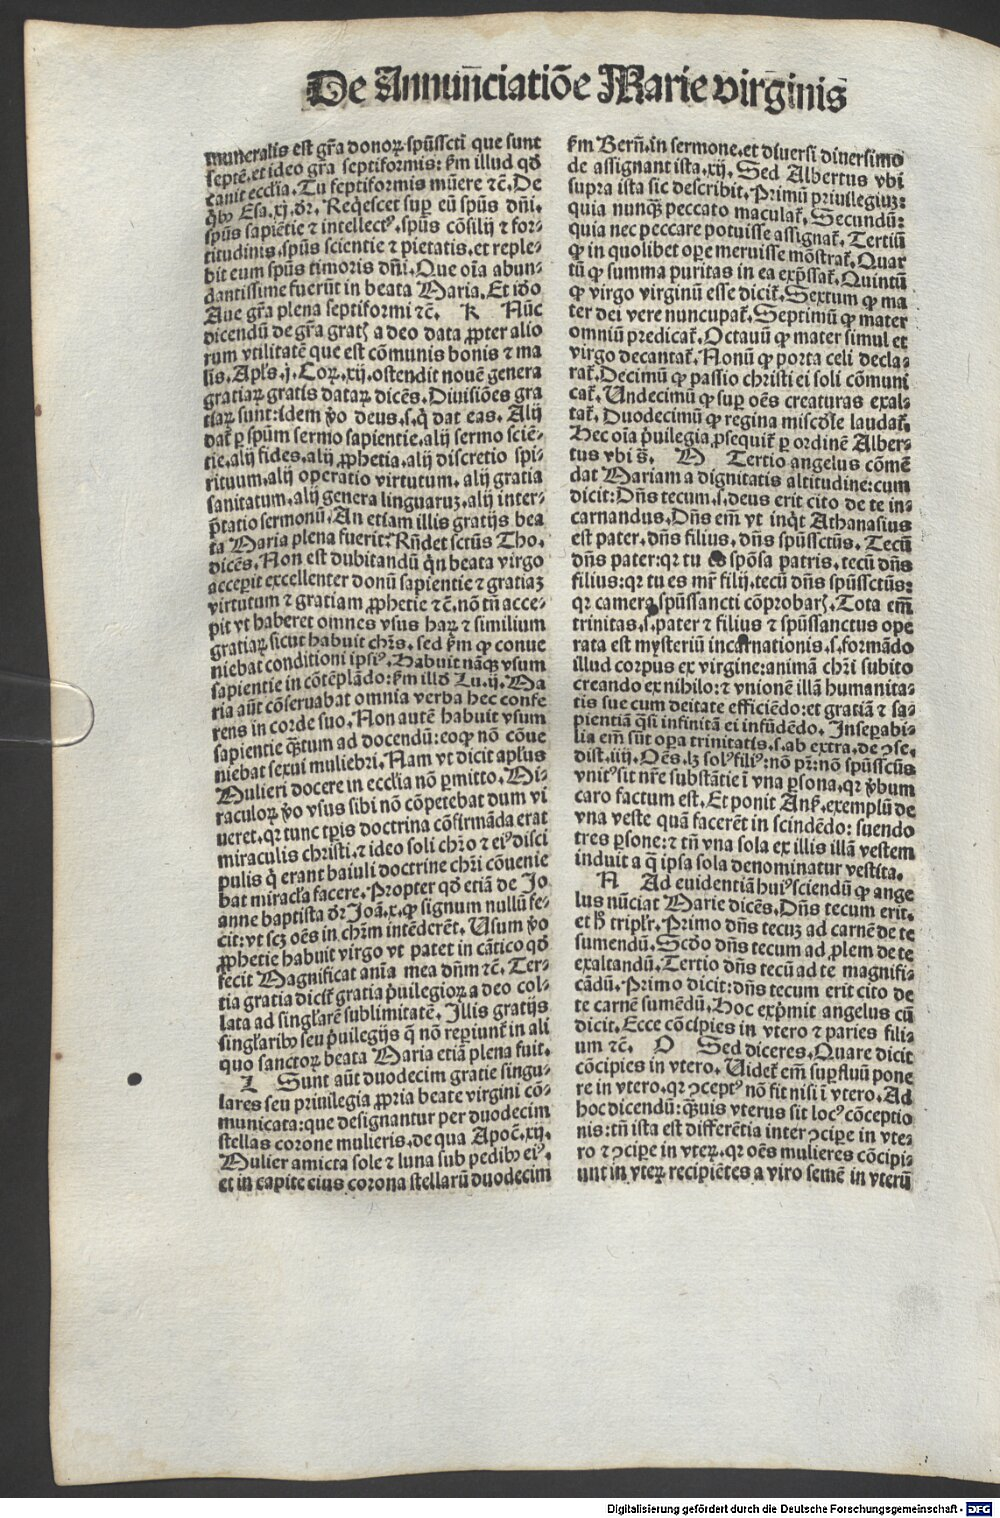 De Annun̄ciatiōe Marie virginis
muneralis est gr̄a donoꝝ spūssctī que sunt
septē. et ideo gr̄a septiformis: ẜm illud qď
canit eccl'ia. Tu septiformis mūere ⁊c̄. De
q̇bꝰ Esa. xj. dr̄. Req̇escet suꝑ eū spūs dn̄i.
spūs sapiētie ⁊ intellectꝰ. spūs cōsilij ⁊ for-
titudinis. spūs scientie ⁊ pietatis. et reple-
bit eum spūs timoris dn̄i. Que oīa abun-
dantissime fuerūt in beata Maria. Et iďo
Aue gr̄a plena septiformi ⁊c̄. K Nūc
dicendū de gr̄a gratꝭ a deo data ꝓpter alio
rum vtilitatē que est cōmunis bonis ⁊ ma
lis. Apl's. j. Coꝝ. xij. ostendit nouē genera
gratiaꝝ gratis dataꝝ dicēs. Diuisiōes gra
tiaꝝ sunt: idem v̊o deus. s. q̇ dat eas. Alij
dat᷑ ꝑ spūm sermo sapientie. alij sermo sciē-
tie. alij fides. alij ꝓphetia. alij discretio spi-
rituum. alij operatio virtutum. alij gratia
sanitatum. alij genera linguaruꝫ. alij inter-
p̄tatio sermonū. An etiam illis gratijs bea
ta Maria plena fuerit? Rn̄det sctūs Tho.
dicēs. Non est dubitandū q̄n beata virgo
acceperit excellenter donū sapientie ⁊ gratiaꝫ
virtutum ⁊ gratiam ꝓphetie ⁊c̄. nō tn̄ acce-
pit vt haberet omnes vsus haꝝ ⁊ similium
gratiaꝝ sicut habuit chr̄s. sed ẜm ꝙ conue
niebat conditioni ipsiꝰ. Habuit nāqꝫ vsum
sapientie in cōtēplādo: ẜm illď Lu. ij. Ma
ria aūt cōseruabat omnia verba hec confe
rens in corde suo. Non autē habuit vsum
sapientie q̄tum ad docendū: eoꝙ nō cōue
niebat sexui muliebri. Nam vt dicit apl'us
Mulieri docere in eccl'ia nō ꝑmitto. Mi-
raculoꝝ v̊o vsus sibi nō cōpetebat dum vi
ueret. qꝛ tunc tꝑis doctrina cōfirmāda erat
miraculis christi. ⁊ ideo soli chr̄o ⁊ eiꝰ disci
pulis q̇ erant baiuli doctrine chr̄i cōuenie
bat miracl'a facere. Propter qď etiā de Jo
anne baptista dr̄ Joā. x. ꝙ signum nullū fe-
cit: vt scꝫ oēs in chr̄m intēderēt. Usum v̊o
ꝓphetie habuit virgo vt patet in cātico qď
fecit Magnificat anīa mea dn̄m ⁊c̄. Ter-
tia gratia dicit᷑ gratia p̄uilegioꝝ a deo col-
lata ad singl'arē sublimitatē. Illis gratijs
singl'aribꝰ seu p̄uilegijs q̄ nō reꝑiunt᷑ in ali
quo sanctoꝝ beata Maria etiā plena fuit.
L Sunt aūt duodecim gratie singu-
lares seu priuilegia ꝓpria beate virgini cō-
municata: que designantur per duodecim
stellas corone mulieris. de qua Apoc̄. xij.
Mulier amicta sole ⁊ luna sub pedibꝰ eiꝰ.
et in capite eius corona stellarū duodecim
ẜm Bern̄. in sermone. et diuersi diuersimo
de assignant ista. xij. Sed Albertus vbi
supra ista sic describit. Primū priuilegiuꝫ:
quia nunqꝫ peccato maculat᷑. Secundū:
quia nec peccare potuisse assignat᷑. Tertiū
ꝙ in quolibet oꝑe meruisse mōstrat᷑. Quar
tū ꝙ summa puritas in ea exp̄ssat᷑. Quintū
ꝙ virgo virginū esse dicit᷑. Sextum ꝙ ma
ter dei vere nuncupat᷑. Septimū ꝙ mater
omniū predicat᷑. Octauū ꝙ mater simul et
virgo decantat᷑. Nonū ꝙ porta celi decla-
rat᷑. Decimū ꝙ passio christi ei soli cōmuni
cat᷑. Undecimū ꝙ suꝑ oēs creaturas exal-
tat᷑. Duodecimū ꝙ regina mīscďie laudat᷑.
Hec oīa p̄uilegia ꝓsequit᷑ ꝑ ordinē Alber-
tus vbi s̄. M Tertio angelus cōmē
dat Mariam a dignitatis altitudine: cum
dicit: Dn̄s tecum. s. deus erit cito de te in-
carnandus. Dn̄s em̄ vt inq̇t Athanasius
est pater. dn̄s filius. dn̄s spūssctūs. Tecū
dn̄s pater: qꝛ tu es spōsa patris. tecū dn̄s
filius: qꝛ tu es mr̄ filij. tecū dn̄s spūssctūs:
qꝛ camera spūssancti cōprobarꝭ. Tota em̄
trinitas. s. pater ⁊ filius ⁊ spūssanctus ope
rata est mysteriū incarnationis. s. formādo
illud corpus ex virgine: animā chr̄i subito
creando ex nihilo: ⁊ vnionē illā humanita-
tis sue cum deitate efficiēdo: et gratiā ⁊ sa-
pientiā q̄si infinitā ei infūdēdo. Inseꝑabi-
lia em̄ sūt oꝑa trinitatis. s. ab extra. de ꝯse.
dist. iiij. Oēs. lꝫ solꝰ filiꝰ: nō pr̄: nō spūssctūs
vnitꝰ sit nr̄e substātie ī vna ꝑsona. qꝛ v̊bum
caro factum est. Et ponit Ans̄. exemplū de
vna veste quā facerēt in scindēdo: suendo
tres ꝑsone: ⁊ tn̄ vna sola ex illis illā vestem
induit a q̄ ipsa sola denominatur vestita.
N Ad euidentiā huiꝰ sciendū ꝙ ange
lus nūciat Marie dicēs. Dn̄s tecum erit.
et ħ tripl'r. Primo dn̄s tecuꝫ ad carnē de te
sumendū. Scďo dn̄s tecum ad ꝓlem de te
exaltandū. Tertio dn̄s tecū ad te magnifi-
cādū. Primo dicit: dn̄s tecum erit cito de
te carnē sumēdū. Hoc exp̄mit angelus cū
dicit. Ecce cōcipies in vtero ⁊ paries fili-
um ⁊c̄. O Sed diceres. Quare dicit
cōcipies in vtero. Uidet᷑ em̄ suꝑfluū pone
re in vtero. qꝛ ꝯceptꝰ nō fit nisi ī vtero. Ad
hoc dicendū: q̄uis vterus sit locꝰ cōceptio
nis: tn̄ ista est differētia inter ꝯciꝑe in vte-
ro ⁊ ꝯciꝑe in vteꝝ. qꝛ oēs mulieres cōcipi-
unt in vteꝝ recipiētes a viro semē in vterū
Digitalisierung gefördert durch die Deutsche Forschungsgemeinschaft - DFG